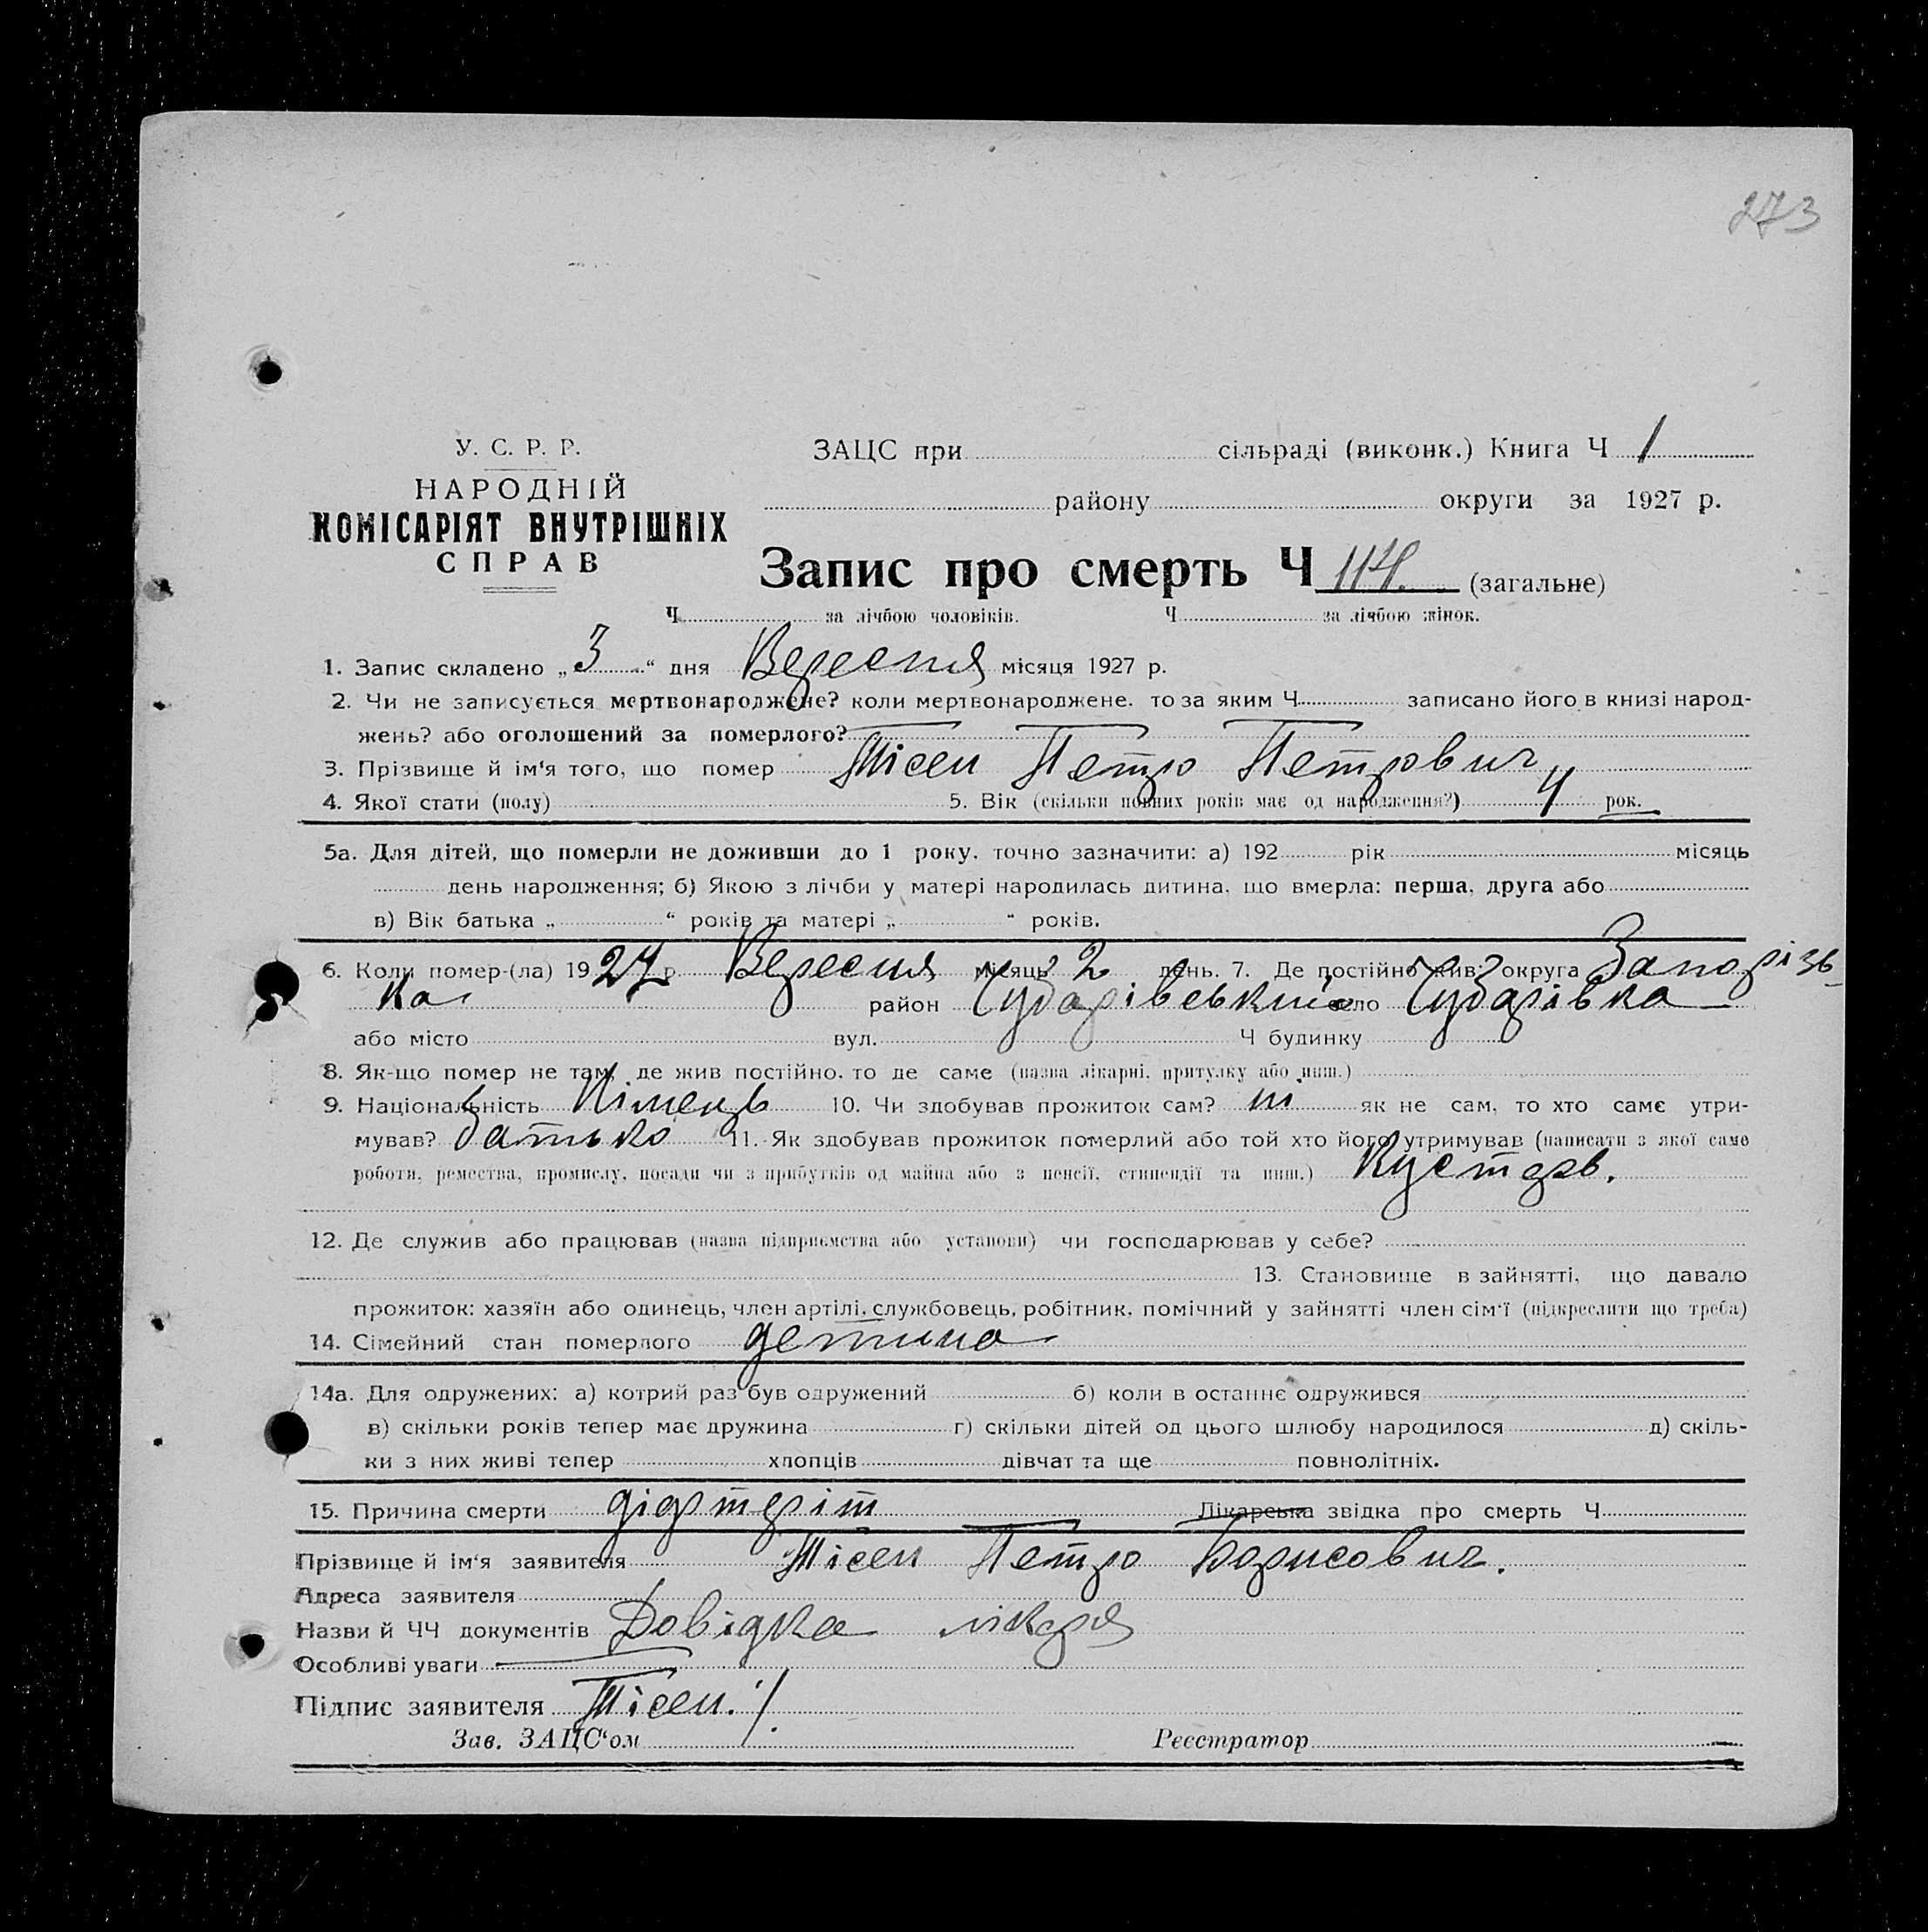 273
У. С. Р. Р.
НАРОДНІЙ
КОМІСАРІЯТ ВНУТРІШНІХ
СПРАВ
ЗАЦС при сільраді (виконк.) Книга Ч 1
району округи за 1927 р.
Запис про смерть Ч 114. (загальне)
Ч за лічбою чоловіків. Ч за лічбою жінок.
1. Запис складено „3“ дня Вересня місяця 1927 р.
2. Чи не записується мертвонароджене? коли мертвонароджене, то за яким Ч записано його в книзі народ-
жень? або оголошений за померлого?
3. Прізвище й ім'я того, що помер Тісен Петро Петрович
4. Якої стати (полу) 5. Вік (скільки повних років має од народження?) 4 рок.
5а. Для дітей, що померли не доживши до 1 року, точно зазначити: а) 192 рік місяць
день народження; б) Якою з лічби у матері народилась дитина, що вмерла: перша, друга або
в) Вік батька „ “ років та матері „ “ років.
6. Коли помер-(ла) 1927 р. Вересня місяць 2 день. 7. Де постійно жив: округа Запорізь-
ка район село
або місто вул. Ч будинку
8. Як-що помер не там, де жив постійно, то де саме (назва лікарні, притулку або инш.)
9. Національність Німець 10. Чи здобував прожиток сам? ні як не сам, то хто саме утри-
мував? батько 11. Як здобував прожиток померлий або той хто його утримував (написати з якої саме
роботи, ремества, промислу, посади чи з прибутків од майна або з пенсії, стипендії та инш.) Кустарь.
12. Де служив або працював (назва підприємства або установи) чи господарював у себе?
13. Становище в зайнятті, що давало
прожиток: хазяїн або одинець, член артілі, службовець, робітник, помічний у зайнятті член сім'ї (підкреслити що треба)
14. Сімейний стан померлого детина
14а. Для одружених: а) котрий раз був одружений б) коли в останнє одружився
в) скільки років тепер має дружина г) скільки дітей од цього шлюбу народилося д) скіль-
ки з них живі тепер хлопців дівчат та ще повнолітніх.
15. Причина смерти діфтеріт Лікарська звідка про смерть Ч
Прізвище й ім'я заявителя Тісен Петро Борисович.
Адреса заявителя
Назви й ЧЧ документів Довідка лікаря
Особливі уваги
Підпис заявителя Тісен.
Зав. ЗАЦС'ом Реєстратор